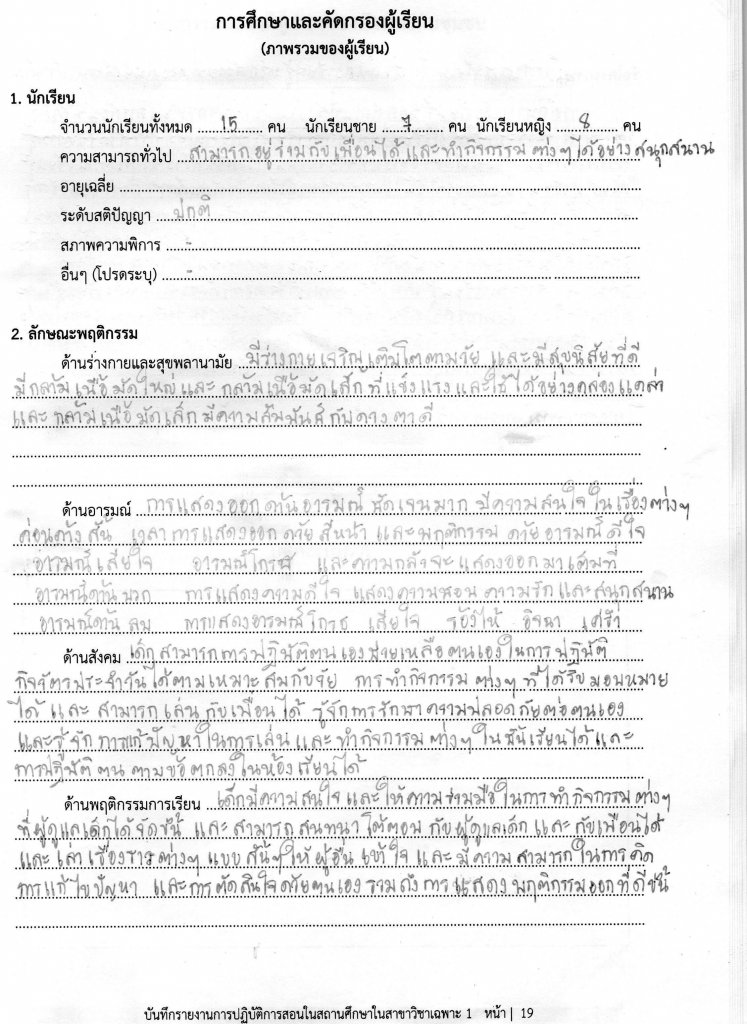 การศึกษาและคัดกรองผู้เรียน
(ภาพรวมของผู้เรียน)
1. นักเรียน
จำนวนนักเรียนทั้งหมด 15 คน นักเรียนชาย 7 คน นักเรียนหญิง 8 คน
ความสามารถทั่วไป สามารถอยู่ร่วมกับเพื่อนได้ และทำกิจกรรมต่างๆได้อย่างสนุกสนาน
อายุเฉลี่ย
ระดับสติปัญญา ปกติ
สภาพความพิการ -
อื่นๆ (โปรดระบุ) -
2. ลักษณะพฤติกรรม
ด้านร่างกายและสุขพลานามัย มีร่างกายเจริญเติบโตตามวัย และมีสุขนิสัยที่ดี
มีกล้ามเนื้อมัดใหญ่และ กล้ามเนื้อมัดเล็กที่แข็งแรงและใช้ได้อย่างคล่องแคล่ว
และ กล้ามเนื้อมัดเล็กมีความสัมพันธ์กับดวงตาดี
ด้านอารมณ์ การแสดงออกด้านอารมณ์ชัดเจนมาก มีความสนใจในเรื่องต่างๆ
ค่อนข้างสั้น เวลาการแสดงออกด้วยสีหน้า และพฤติกรรม ด้วยอารมณ์ดีใจ
อารมณ์เสียใจ อารมณ์โกรธ และความกลัวจะแสดงออกมาเต็มที่
อารมณ์ด้านบวก การแสดงความดีใจ แสดงความชอบ ความรักและสนุกสนาน
อารมณ์ด้านลบ การแสดงอารมณ์โกรธ เสียใจ ร้องไห้ อิจฉา เศร้า
ด้านสังคม เด็กสามารถการปฏิบัติตนเองช่วยเหลือตนเองในการปฏิบัติ
กิจวัตรประจำวันได้ตามเหมาะสมกับวัย การทำกิจกรรมต่างๆที่ได้รับมอบหมาย
ได้ และ สามารถเล่นกับเพื่อนได้ รู้จักการรักษาความปลอดภัยต่อตนเอง
และรู้จักการแก้ปัญหาในการเล่นและทำกิจกรรมต่างๆในชั้นเรียนได้และ
การปฏิบัติตนตามข้อตกลงในห้องเรียนได้
ด้านพฤติกรรมการเรียน เด็กมีความสนใจและให้ความร่วมมือในการทำกิจกรรมต่างๆ
ที่ผู้ดูแลเด็กได้จัดขึ้น และ สามารถสนทนาโต้ตอบกับผู้ดูแลเด็กและกับเพื่อนได้
และ เล่าเรื่องราวต่างๆ แบบสั้นๆให้ผู้อื่นเข้าใจ และมีความสามารถในการคิด
การแก้ไขปัญหา และการตัดสินใจด้วยตนเอง รวมถึงการแสดงพฤติกรรมออกที่ดีขึ้น
บันทึกรายงานการปฏิบัติการสอนในสถานศึกษาในสาขาวิชาเฉพาะ 1 หน้า | 19